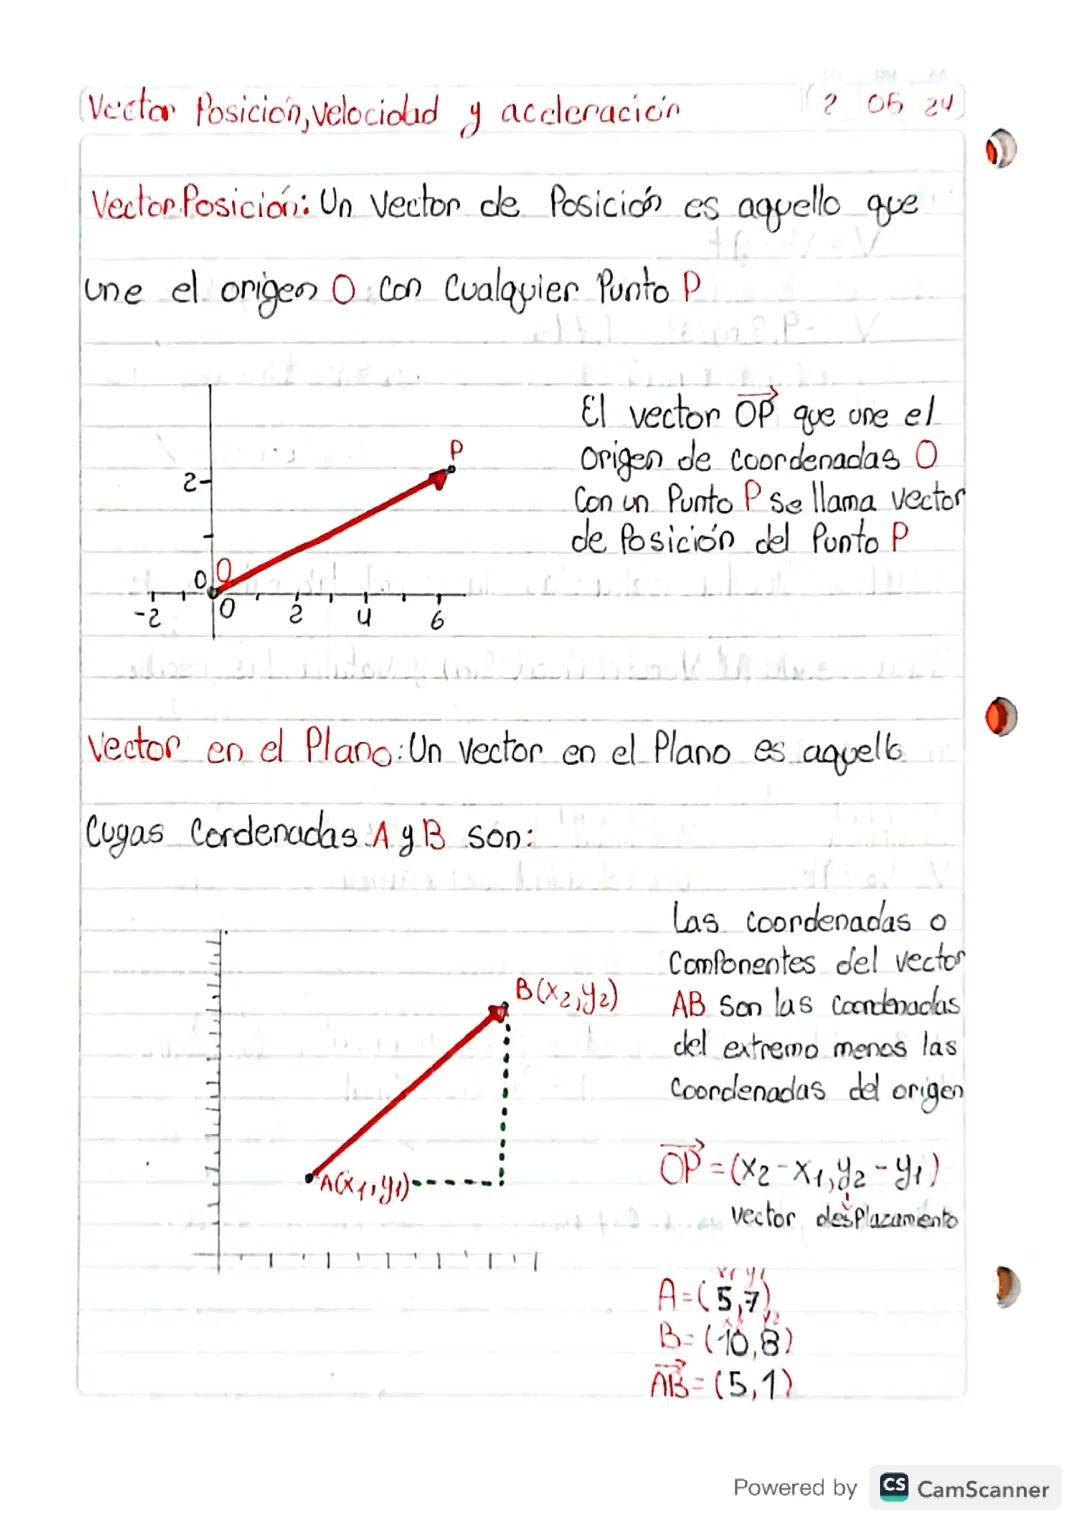 Vector Posición, velocidad y aceleración
2 05 24
Vector Posición: Un Vector de Posición es aquello que
une el origen O con Cualquier Punto P
El vector OP que une el
Origen de coordenadas O
Con un Punto P se llama vector
de Posición del Punto P
P
2
0 O
-2 0 2 4 6
Vector en el Plano: Un Vector en el Plano es aquello
Cuyas Cordenadas A y B son:
Las coordenadas o
Componentes del vector
AB Son las coordenadas
del extremo menos las
Coordenadas del origen
B(x2,y2)
A(x1,y1)
OP=(x2-x1,y2-y1)
vector desplazamento
x1 y1
A=(5,7)
x2 y2
B=(10,8)
AB=(5,1)
Powered by CS CamScanner